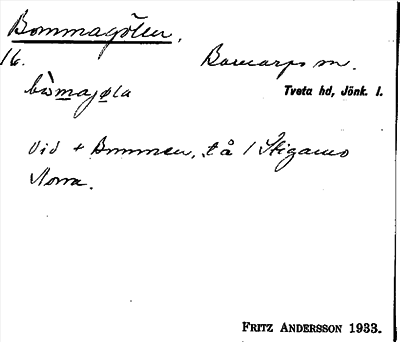 Bommagölen.
16. Barnarps sn.
bòmajøla Tveta hd, Jönk. l.
Vid + Bommen, t å 1 Stigamo
Norra.
FRITZ ANDERSSON 1933.